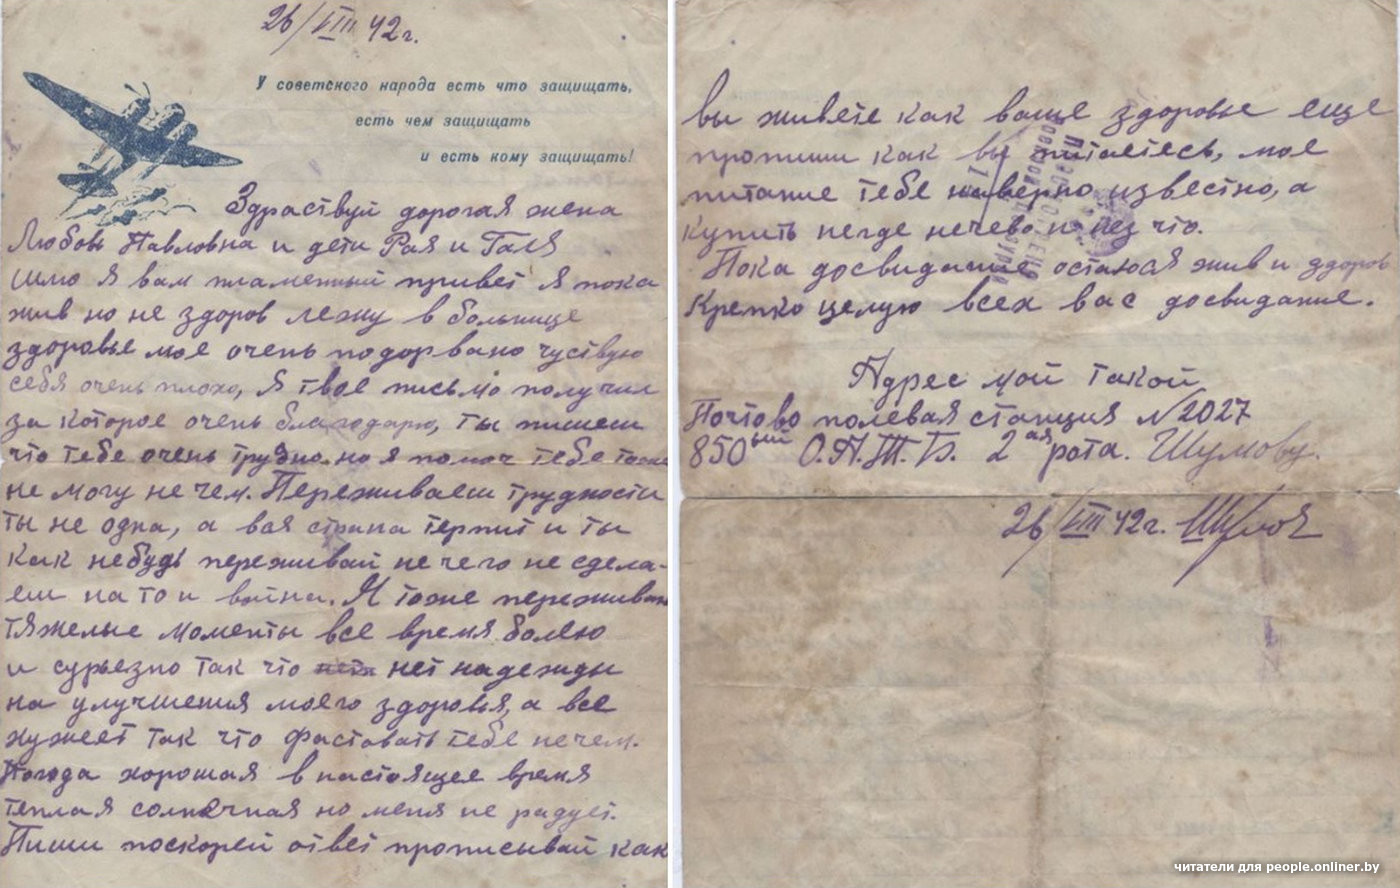 26/VIII 42г.
У советского народа есть что защищать,
есть чем защищать
и есть кому защищать!
Здраствуй дорогая жена
Любовь Павловна и дети Рая и Галя
шлю я вам пламенный привет я пока
жив но не здоров лежу в больнице
здоровье мое очень подорвано чуствую
себя очень плохо, я твое письмо получил
за которое очень благодарю, ты пишеш
что тебе очень трузно но я помоч тебе тоже
не могу не чем. Переживаеш трудности
ты не одна, а вся страна терпит и ты
как небудь переживай не чего не сдела-
еш на то и война. Я тоже переживаю
тяжелые моменты все время болею
и сурьезно так что нет надежды
на улучшения моего здоровья, а все
хужеет так что фастовать тебе нечем.
Погода хорошая в настоящее время
теплая солнечная но меня не радует.
Пиши поскорей ответ прописывай как
вы живете как ваше здоровье еще
пропиши как вы питаетесь, мое
питание тебе наверно известно, а
купить негде нечево и не што.
Пока досвидание остаюся жив и здоров
Крепко целую всех вас досвидание.
Адрес мой такой
Почтово полевая станция №2027
850ый О.А.Т.Б. 2ая рота. Шумову.
26/VIII 42г.
читатели для people.onliner.by